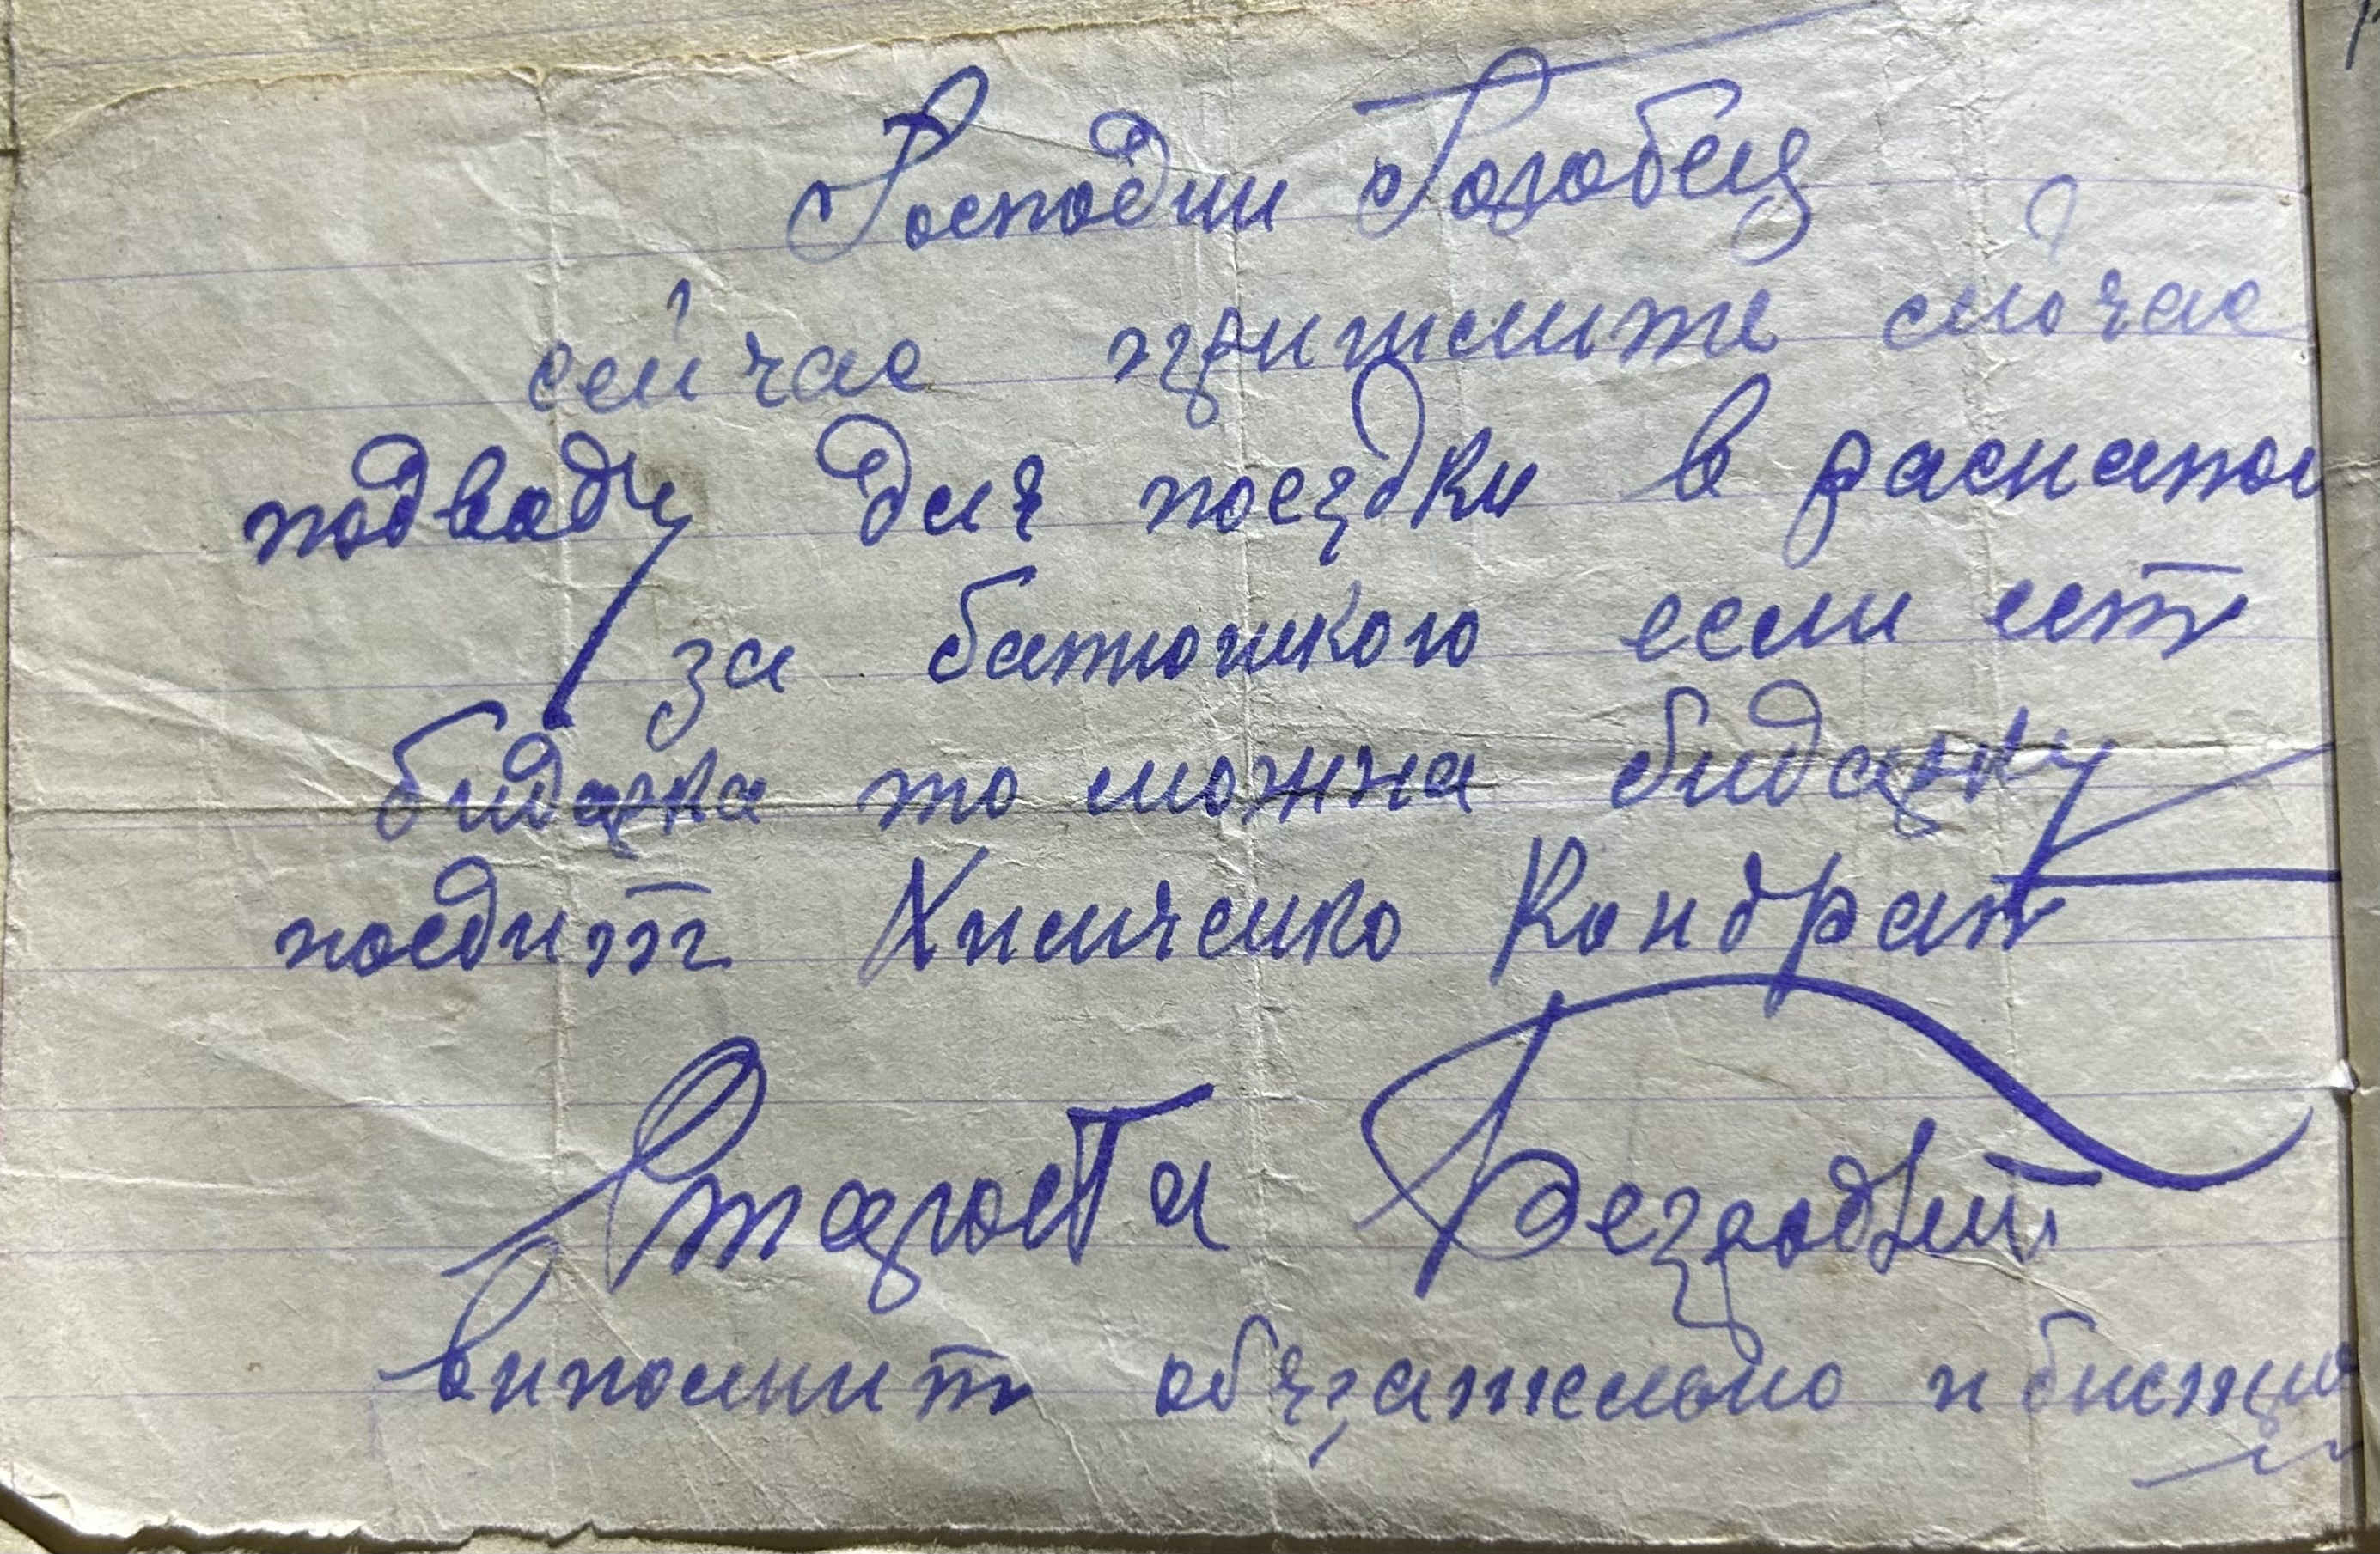 Господин Горобец
сейчас пришлите сейчас
подводу для поездки в распапол
за батюшкою если ест
бидарка то можна бидарку
поедит Химченко Кондрат
Староста Безродний
виполнит обязателно и бистро